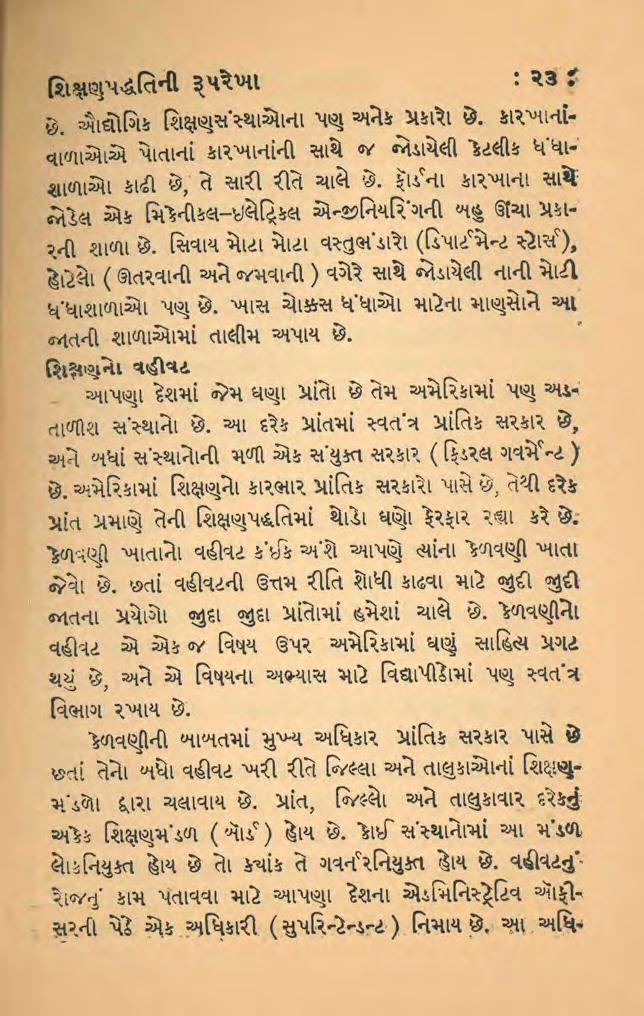 શિક્ષણપદ્ધતિની રૂપરેખા : ૨૩ :
છે. ઔદ્યોગિક શિક્ષણસંસ્થાઓના પણ અનેક પ્રકારો છે. કારખાનાં-
વાળાઓએ પોતાનાં કારખાનાંની સાથે જ જોડાયેલી કેટલીક ધંધા-
શાળાઓ કાઢી છે, તે સારી રીતે ચાલે છે. ફૉર્ડના કારખાના સાથે
જોડેલ એક મિકેનીકલ-ઇલેટ્રિકલ એન્જીનિયરિંગની બહુ ઊંચા પ્રકા-
રની શાળા છે. સિવાય મોટા મોટા વસ્તુભંડારો (ડિપાર્ટમેન્ટ સ્ટોર્સ),
હોટેલો ( ઊતરવાની અને જમવાની ) વગેરે સાથે જોડાયેલી નાની મોટી
ધંધાશાળાઓ પણ છે. ખાસ ચોક્કસ ધંધાઓ માટેના માણસોને આ
જાતની શાળાઓમાં તાલીમ અપાય છે.
શિક્ષણનો વહીવટ
આપણા દેશમાં જેમ ઘણા પ્રાંતો છે તેમ અમેરિકામાં પણ અડ-
તાળીશ સંસ્થાનો છે. આ દરેક પ્રાંતમાં સ્વતંત્ર પ્રાંતિક સરકાર છે,
અને બધાં સંસ્થાનોની મળી એક સંયુક્ત સરકાર ( ફિડરલ ગવર્મેન્ટ )
છે. અમેરિકામાં શિક્ષણનો કારભાર પ્રાંતિક સરકારો પાસે છે, તેથી દરેક
પ્રાંત પ્રમાણે તેની શિક્ષણપદ્ધતિમાં થોડો ઘણો ફેરફાર રહ્યા કરે છે.
કેળવણી ખાતાનો વહીવટ કંઈક અંશે આપણે ત્યાંના કેળવણી ખાતા
જેવો છે. છતાં વહીવટની ઉત્તમ રીતિ શોધી કાઢવા માટે જુદી જુદી
જાતના પ્રયોગો જુદા જુદા પ્રાંતોમાં હમેશાં ચાલે છે. કેળવણીનો
વહીવટ એ એક જ વિષય ઉપર અમેરિકામાં ઘણું સાહિત્ય પ્રગટ
થયું છે, અને એ વિષયના અભ્યાસ માટે વિદ્યાપીઠોમાં પણ સ્વતંત્ર
વિભાગ રખાય છે.
કેળવણીની બાબતમાં મુખ્ય અધિકાર પ્રાંતિક સરકાર પાસે છે
છતાં તેનો બધો વહીવટ ખરી રીતે જિલ્લા અને તાલુકાઓનાં શિક્ષણ-
મંડળો દ્વારા ચલાવાય છે. પ્રાંત, જિલ્લો અને તાલુકાવાર દરેકનું
અકેક શિક્ષણમંડળ ( બૉર્ડ ) હોય છે. કોઈ સંસ્થાનોમાં આ મંડળ
લોકનિયુક્ત હોય છે તો ક્યાંક તે ગવર્નરનિયુક્ત હોય છે. વહીવટનું
રોજનું કામ પતાવવા માટે આપણા દેશના એડમિનિસ્ટ્રેટિવ ઑફી-
સરની પેઠે એક અધિકારી ( સુપરિન્ટેન્ડન્ટ ) નિમાય છે. આ અધિ-